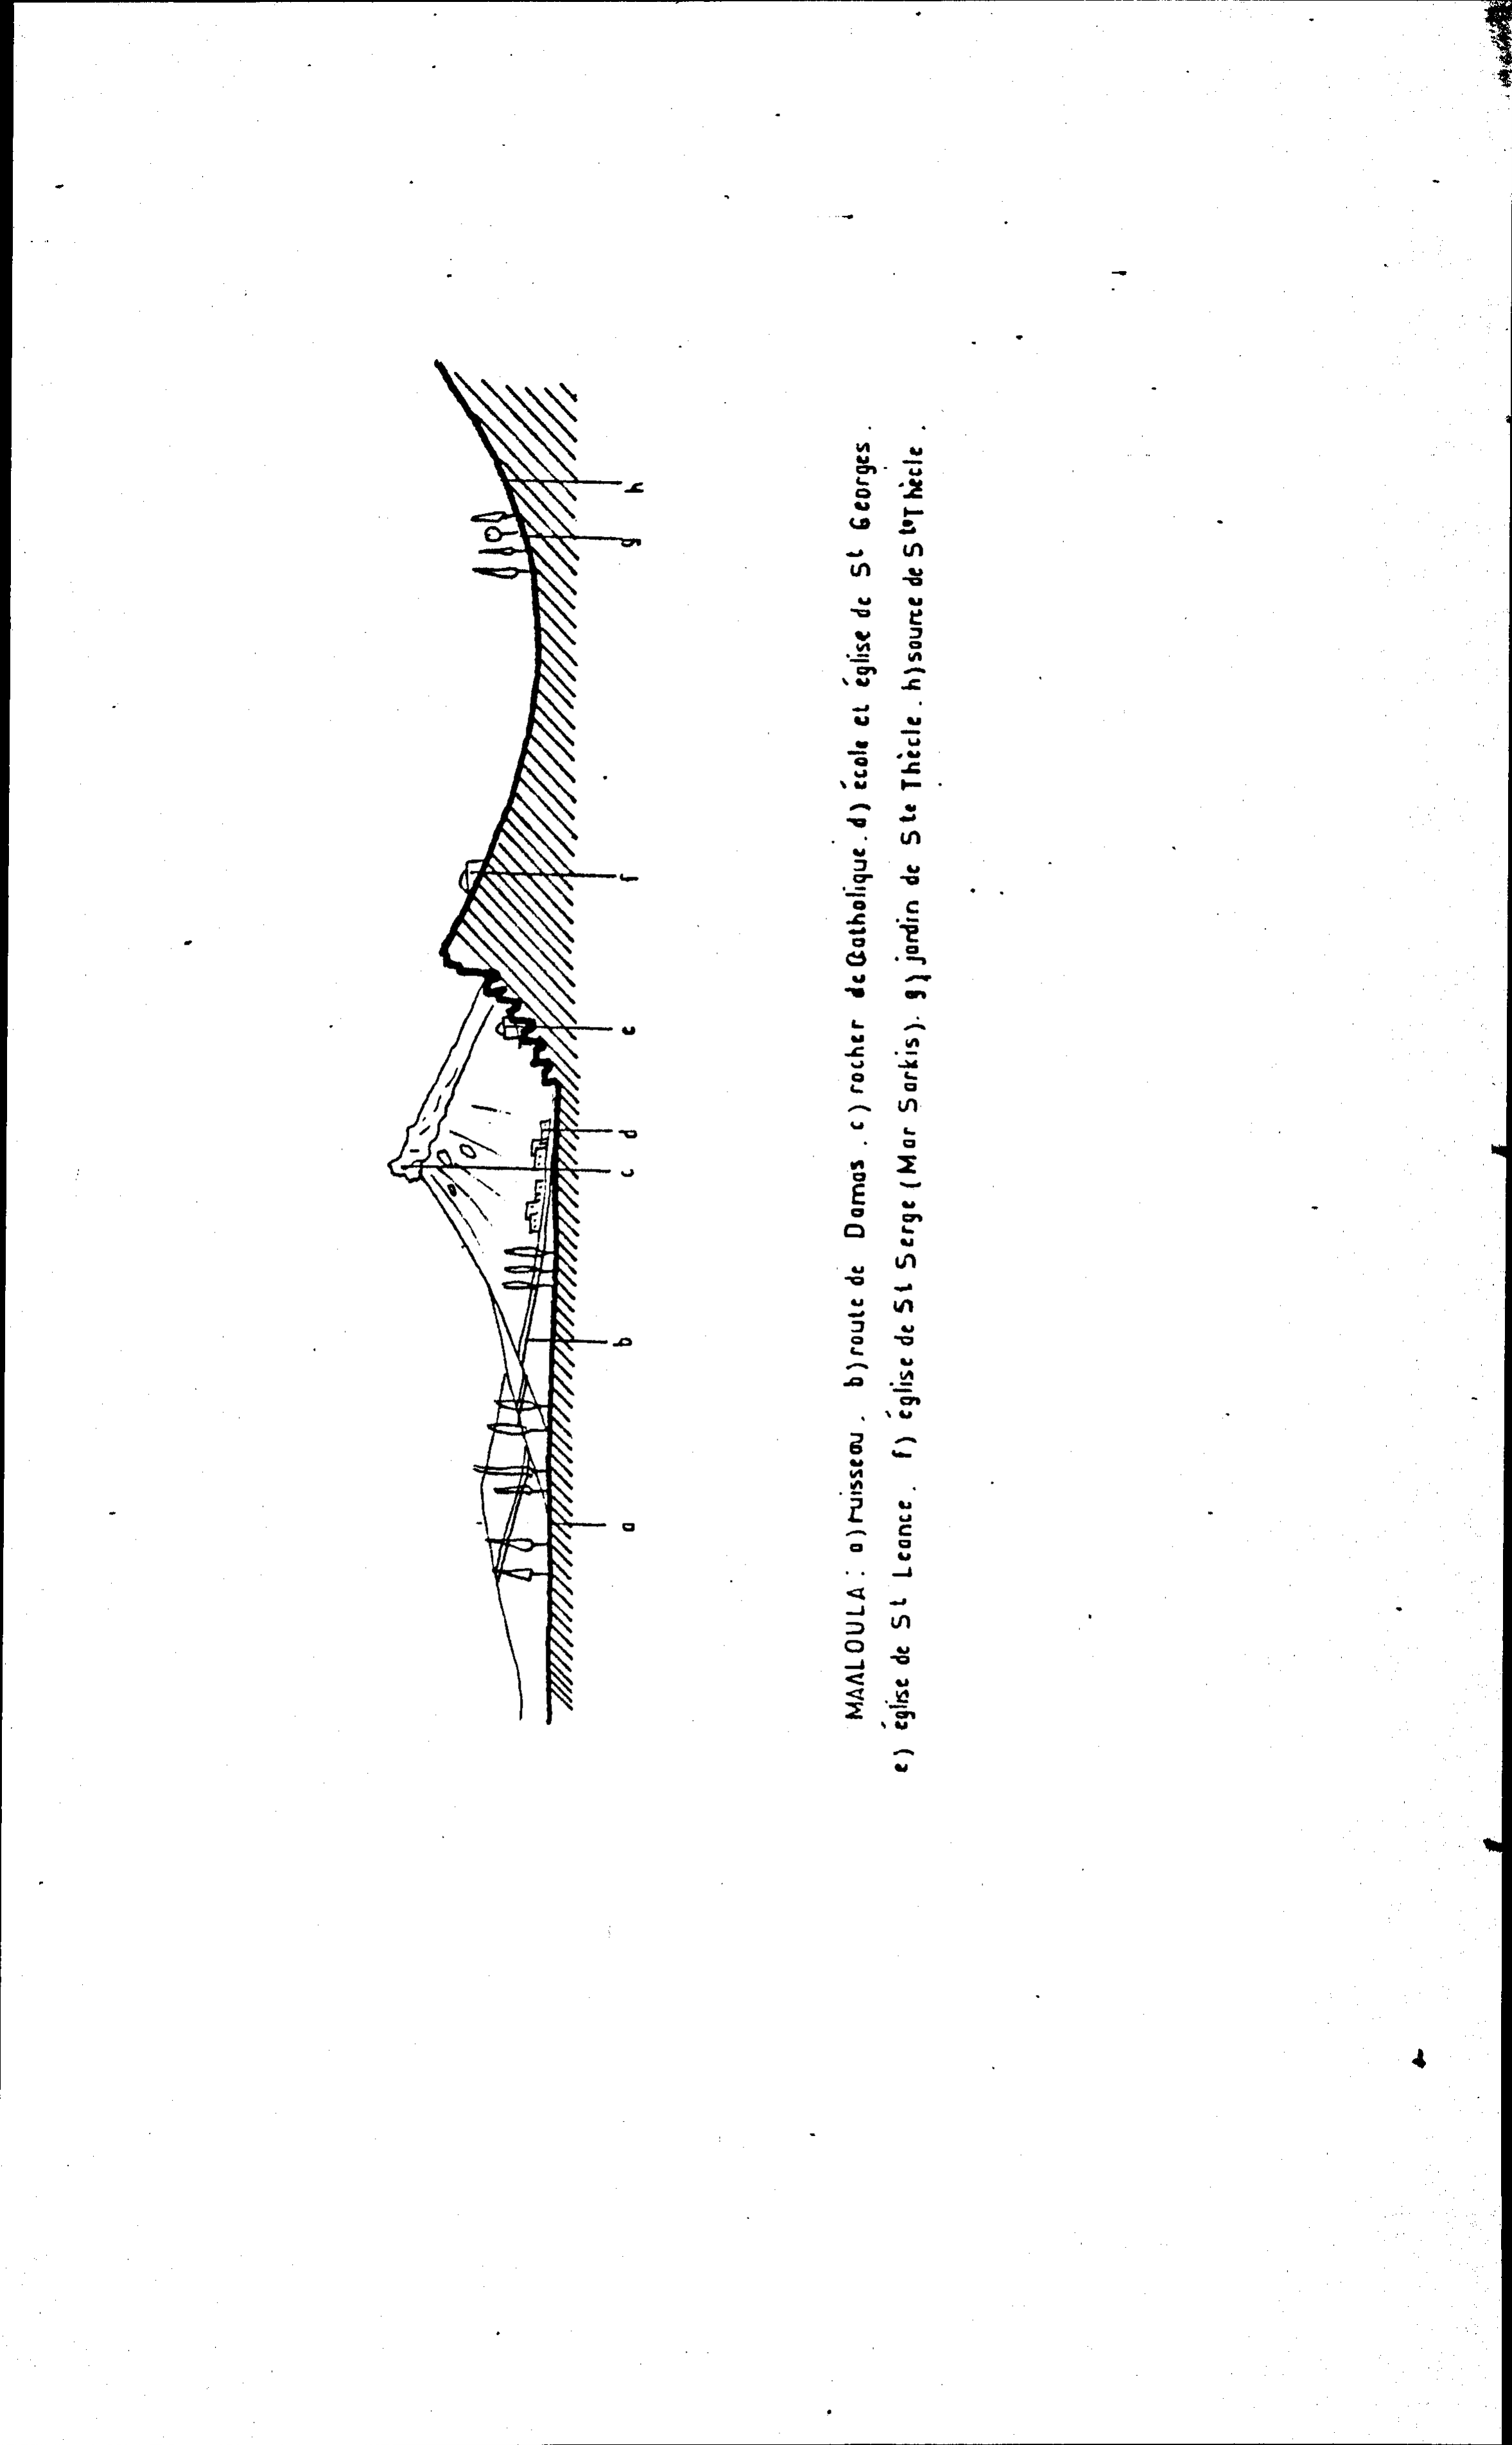 a b c d e f g h
MAALOULA : a) ruisseau . b) route de Damas . c) rocher de Catholique . d) école et église de St Georges .
e) église de St Leance . f) église de St Serge (Mar Sarkis) . g) jardin de Ste Thècle . h) source de Ste Thècle .